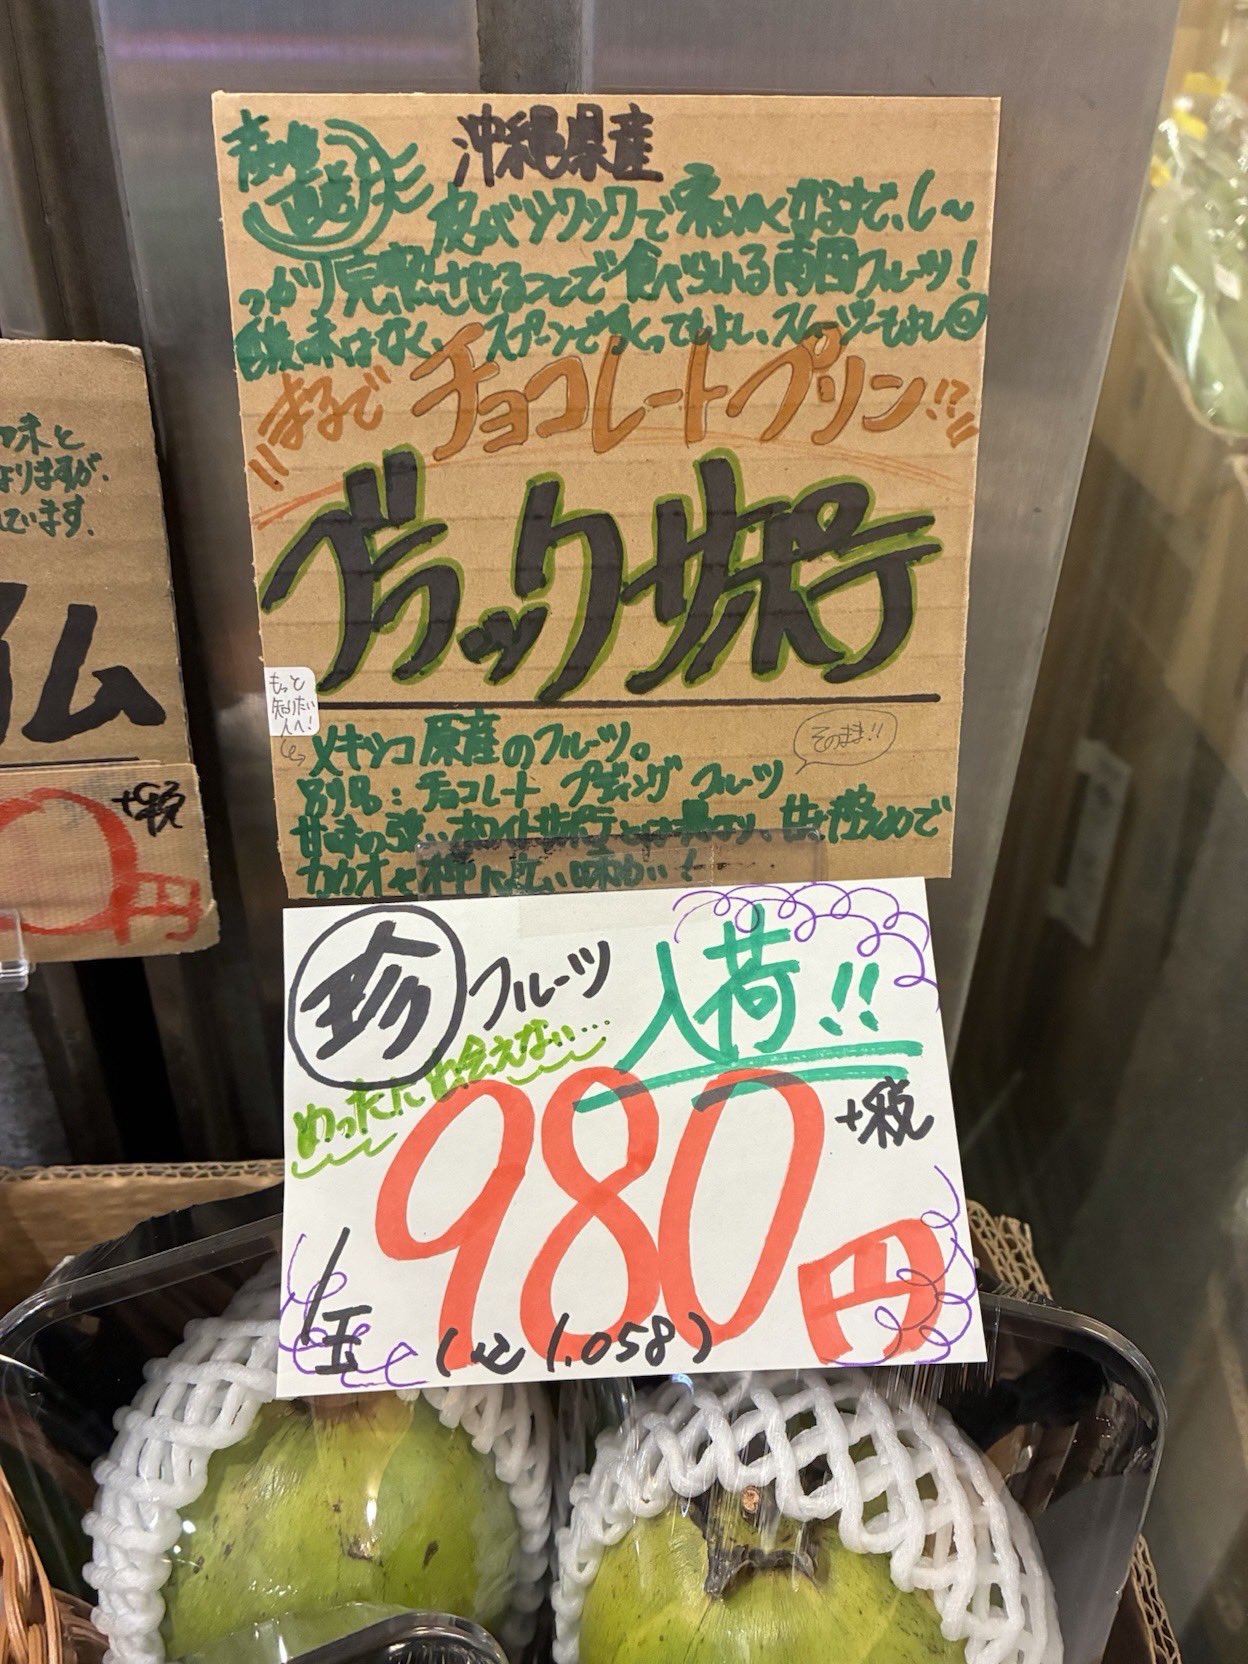 産地直送
沖縄県産
皮がシワシワで柔らかくなるまで、し~
っかり完熟させることで食べられる南国フルーツ!
酸味はなく、スプーンですくってもよし、スムージーもよし
まるで チョコレートプリン!?
ブラックサポテ
もっと
知りたい
人へ!
メキシコ原産のフルーツ。
そのまま!!
別名:チョコレート プディング フルーツ
甘味の強いホワイトサポテとは異なり、甘さ控えめで
カカオや柿に近い味わい!
珍フルーツ 入荷!!
めったに出会えない…
980円
+税
1玉
(税込1,058)
味と
なりますが、
ています。
イム
+税
0円